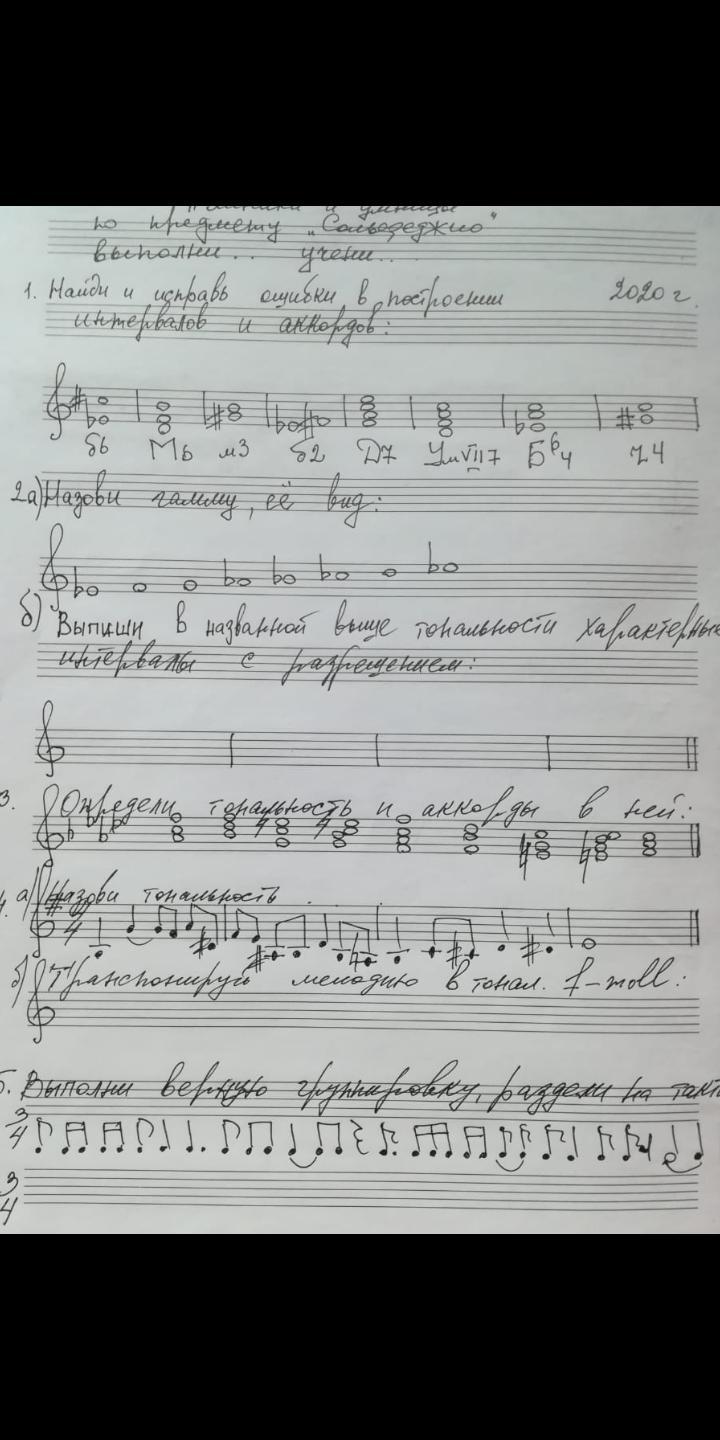 и умницы
по предмету „Сольфеджио"
выполни.. учени...
1. Найди и исправь ошибки в построении 2020 г.
интервалов и аккордов:
б6 М6 м3 б2 Д7 УмVII7 Б6/4 ч4
2а) Назови гамму, её вид:
б) Выпиши в названной выше тональности характерные
интервалы с разрешением:
3. Определи тональность и аккорды в ней:
4. а) Назови тональность . .
4
б) Транспонируй мелодию в тонал. f-moll:
5. Выполни верную группировку, раздели на такты
3
4
3
4